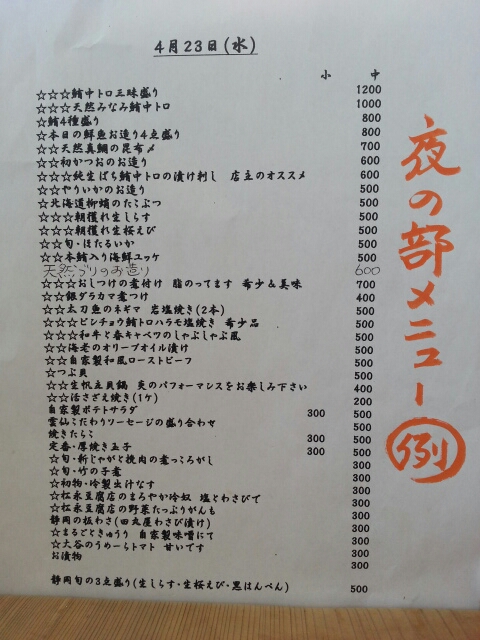 4月23日(水)
小 中
☆☆☆鮪中トロ三昧盛り 1200
☆☆☆天然みなみ鮪中トロ 1000
☆鮪4種盛り 800
☆本日の鮮魚お造り4点盛り 800
☆☆天然真鯛の昆布〆 700
☆☆初かつおのお造り 600
☆☆☆純生ばち鮪中トロの漬け刺し 店主のオススメ 600
☆☆やりいかのお造り 500
☆北海道柳蛸のたこぶつ 500
☆☆☆朝獲れ生しらす 500
☆☆☆朝獲れ生桜えび 500
☆☆旬・ほたるいか 500
☆☆本鮪入り海鮮ユッケ 500
天然ブリのお造り 600
☆☆☆おしつけの煮付け 脂のってます 希少&美味 700
☆☆銀ダラカマ煮つけ 400
☆☆太刀魚のネギマ 岩塩焼き(2本) 500
☆☆☆ビンチョウ鮪トロハラモ塩焼き 希少品 500
☆☆☆和牛と春キャベツのしゃぶしゃぶ風 500
☆☆海老のオリーブオイル漬け 500
☆☆自家製和風ローストビーフ 500
☆つぶ貝 500
☆☆生帆立貝鍋 炎のパフォーマンスをお楽しみ下さい 400
☆☆活さざえ焼き(1ケ) 200
自家製ポテトサラダ 300 500
雲仙こだわりソーセージの盛り合わせ 500
焼きたらこ 300 500
定番・厚焼き玉子 300 500
☆旬・新じゃがと挽肉の煮っころがし 300
☆旬・竹の子煮 300
☆初物・冷製出汁なす 300
☆松永豆腐店のまろやか冷奴 塩とわさびで 300
☆松永豆腐店の野菜たっぷりがんも 300
静岡の板わさ(田丸屋わさび漬け) 300
☆まるごときゅうり 自家製味噌にて 300
☆大谷のうめーらトマト 甘いです 300
お漬物 300
静岡旬の3点盛り(生しらす・生桜えび・黒はんぺん) 500
夜の部メニュー例